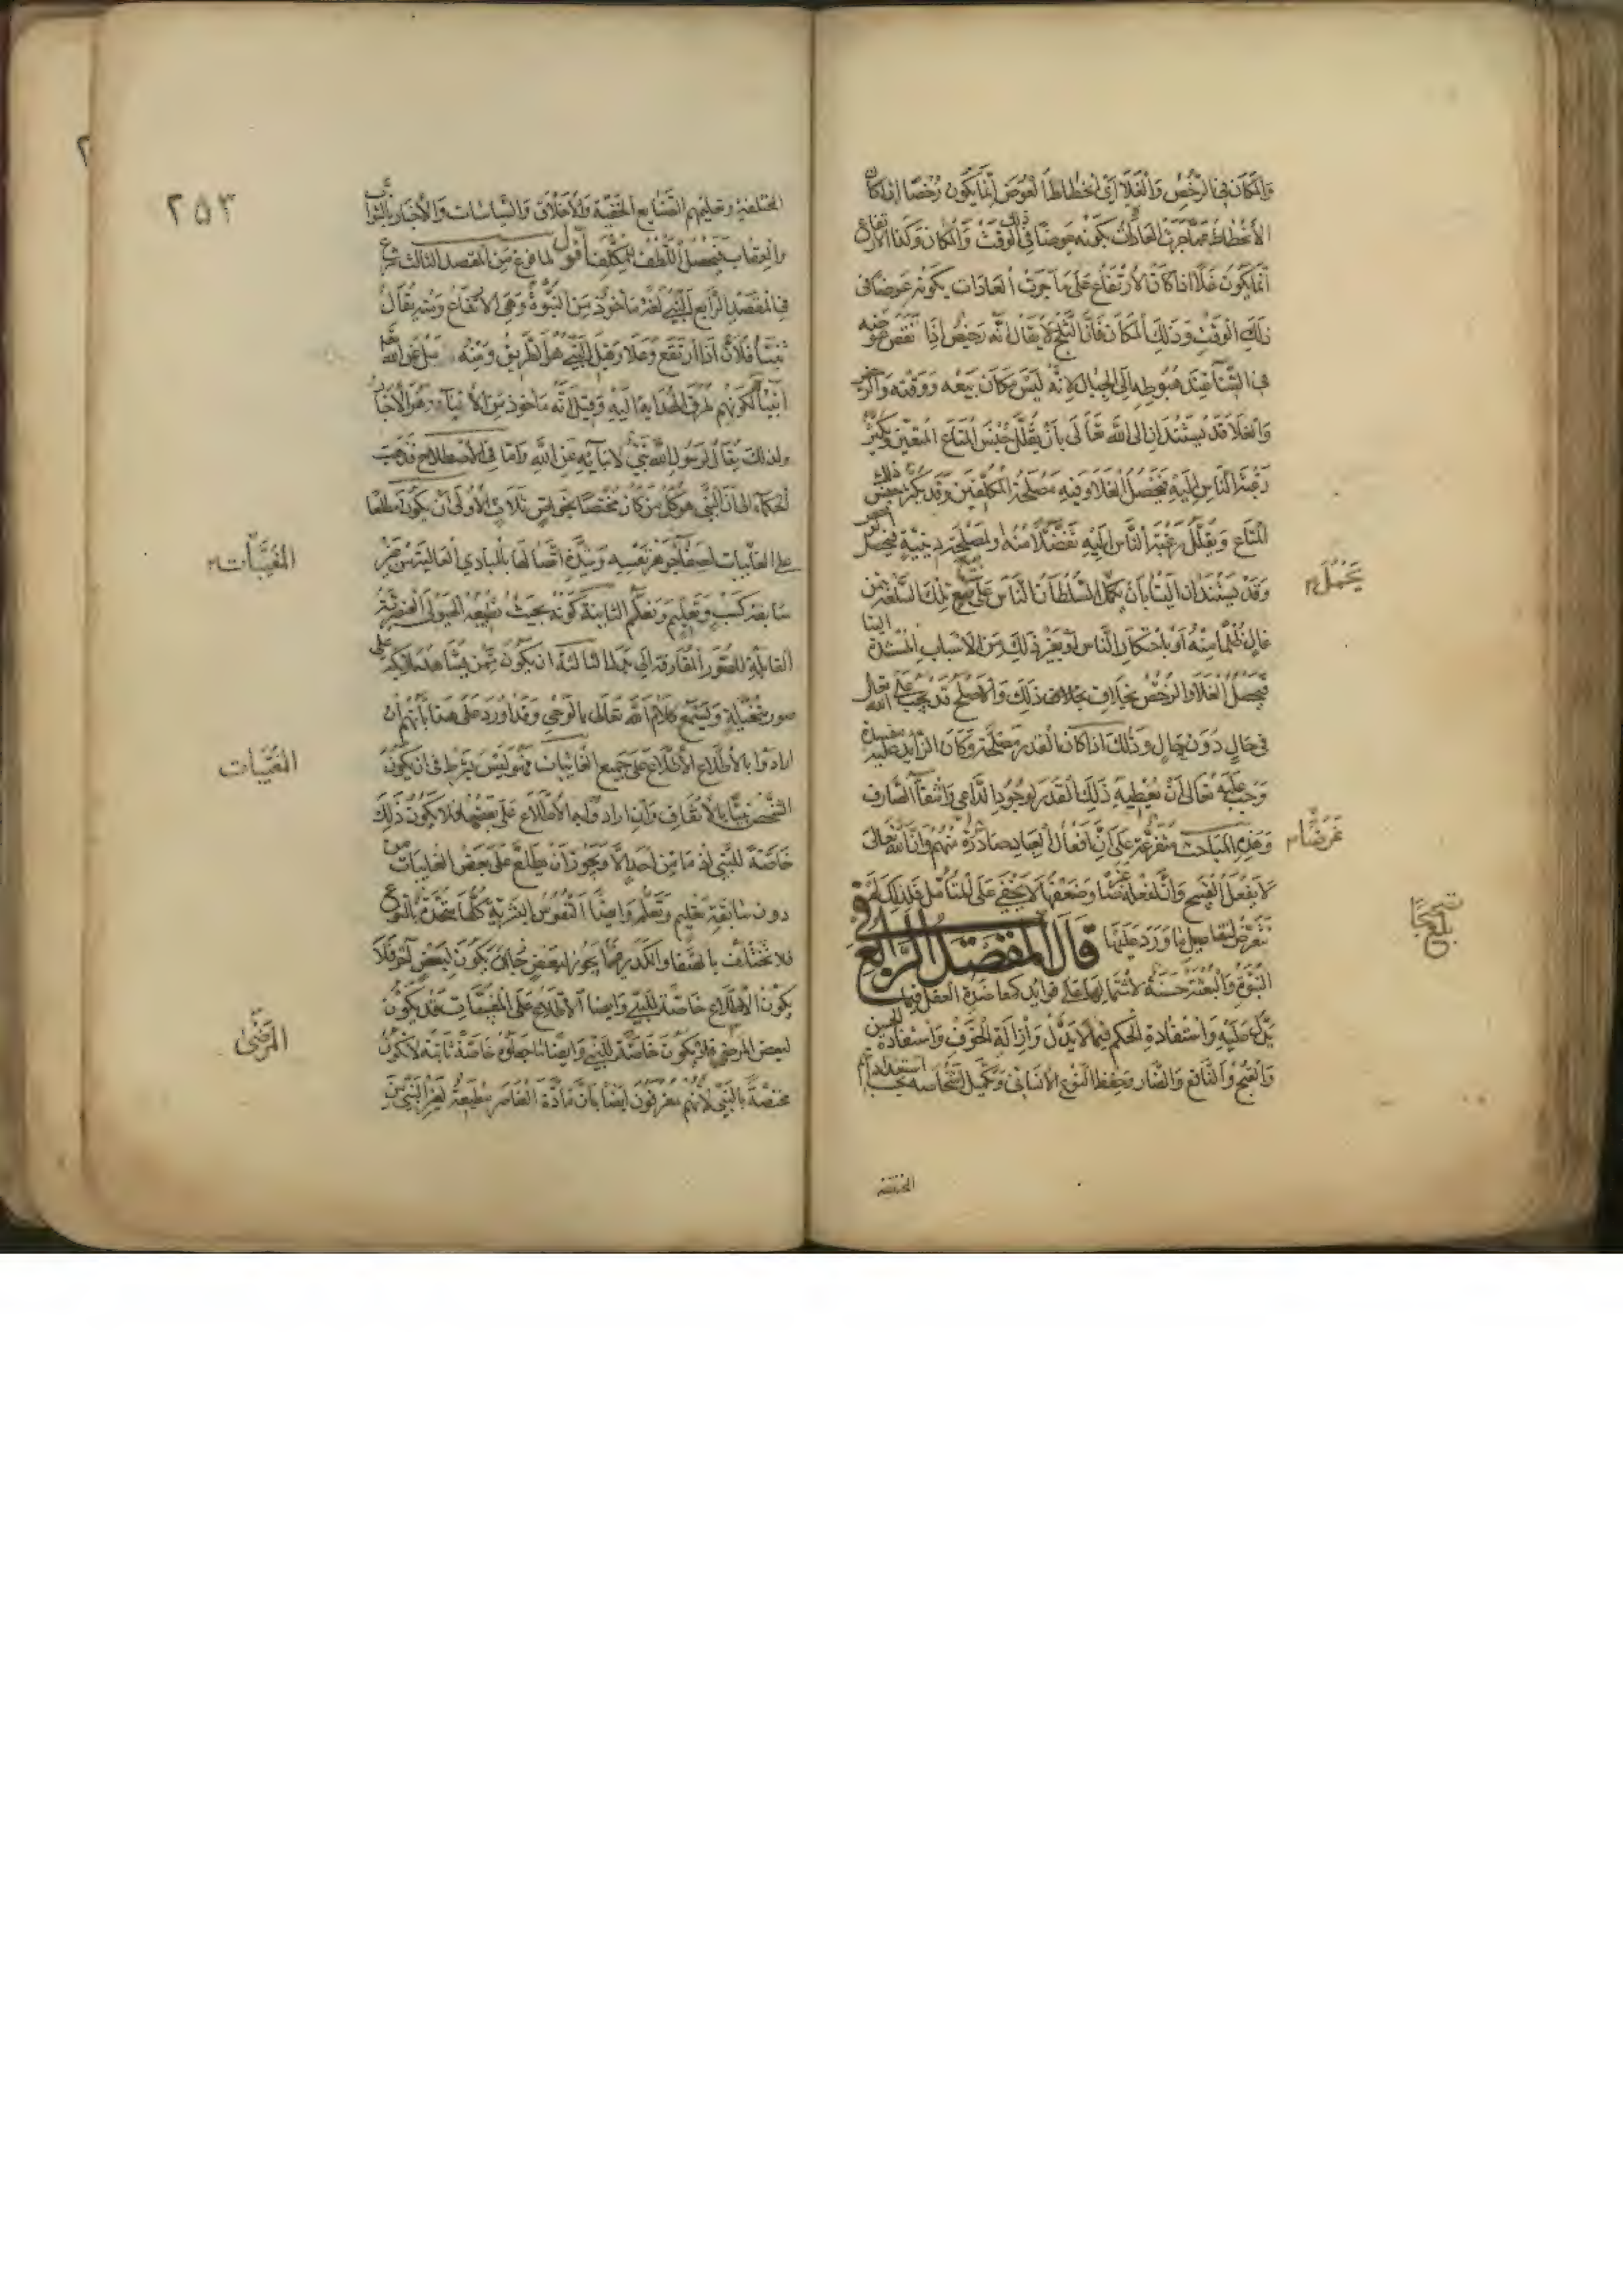 والمكان في الرخص والغلاء اي انحطاط العوض انما يكون رخصا اذا كان
الانحطاط عما جرت العادات بكونه عوضا في ذلك الوقت والمكان وكذا الارتفاع
انما يكون غلاء اذا كان الارتفاع على ما جرت العادات بكونه عوضا في
ذلك الوقت وذلك المكان فان الثلج لا يقال انه رخيص اذا نقص عوضه
في الشتاء عند هبوطه الى الجبال لانه ليس مكان بيعه ووقته والرخص
والغلاء قد يستندان الى الله تعالى بان يقلل جنس المتاع المعين ويكثر
رغبة الناس اليه فيحصل الغلاء وفيه مصلحة المكلفين وقد يكثر جنس ذلك
المتاع ويقلل رغبة الناس اليه تفضلا منه او لمصلحة دينية فيحصل الرخص
وقد يستندان الينا بان يحمل السلطان الناس على بيع تلك السلعة بثمن
غال ظلما منه او باحتكار الناس او بغير ذلك من الاسباب المستندة الينا
فيحصل الغلاء والرخص بخلاف ذلك والاصلح قد يجب على الله تعالى
في حال دون حال وذلك اذا كان القدر مصلحة وكان الزايد عليه مفسدة
وجب عليه تعالى ان يعطيه ذلك القدر لوجود الداعي وانتفاء الصارف
وهذه المباحث متفرعة على ان افعال العباد صادرة منهم وان الله تعالى
لا يفعل القبيح وان لفعله غرضا وضعفها لا يخفى على المتأمل فلذلك لم
نتعرض لتفاصيل ما ورد عليها قال المقصد الرابع في
النبوة والبعثة حسنة لاشتمالها على فوايد كمعاضدة العقل فيما
يدل عليه واستفادة الحكم فيما لا يدل وازالة الخوف واستفادة الحسن
والقبح والنافع والضار وحفظ النوع الانساني وتكميل اشخاصه بحسب استعداداتهم
المختلفة
يحمل
غرضا م
بلغ تصحيحا
٢٥٣
المختلفة وتعليمهم الصنايع الخفية والاخلاق والسياسات والاخبار بالثواب
والعقاب فيحصل اللطف للمكلف اقول لما فرغ من المقصد الثالث شرع
في المقصد الرابع النبي لغة مأخوذ من النبوة وهي الارتفاع ومنه يقال
تنبأ فلان اذا ارتفع وعلا وقيل النبي هو الطريق ومنه رسل الله
انبياء لكونهم طرق الهداية اليه وقيل انه مأخوذ من الانباء وهو الاخبار
ولذلك يقال لرسول الله نبي لانبائه عن الله واما في الاصطلاح فذهب
الحكماء الى ان النبي هو كل من كان مختصا بخواص ثلاث الاولى ان يكون مطلعا
على الغايبات لصفاء جوهر نفسه وشدة اتصالها بالمبادي العالية من غير
سابقة كسب وتعليم وتعلم الثانية كونه بحيث تطيعه الهيولى العنصرية
القابلة للصور المفارقة الى بدلها الثالثة ان يكون ممن يشاهد ملايكة على
صور متخيلة ويسمع كلام الله تعالى بالوحي وقد اورد على هذا بانهم ان
ارادوا بالاطلاع الاطلاع على جميع الغايبات فهو ليس بشرط في ان يكون
الشخص نبيا بالاتفاق وان ارادوا به الاطلاع على بعضها فلا يكون ذلك
خاصة للنبي اذ ما من احد الا ويجوز ان يطلع على بعض الغايبات من
دون سابقة تعليم وتعلم وايضا النفوس البشرية كلها متحدة بالنوع
فلا تختلف بالصفاء والكدر فما يجوز لبعض جاز ان يكون لبعض آخر فلا
يكون الاطلاع خاصة للنبي وايضا الاطلاع على المغيبات قد يكون
لبعض المرضى فلا يكون خاصة للنبي وايضا ما جعلوه خاصة ثانية لا يكون
مختصة بالنبي لانهم معترفون ايضا بان مادة العناصر مطيعة لغير النبي من
المغيبات
المغيبات
المرضى